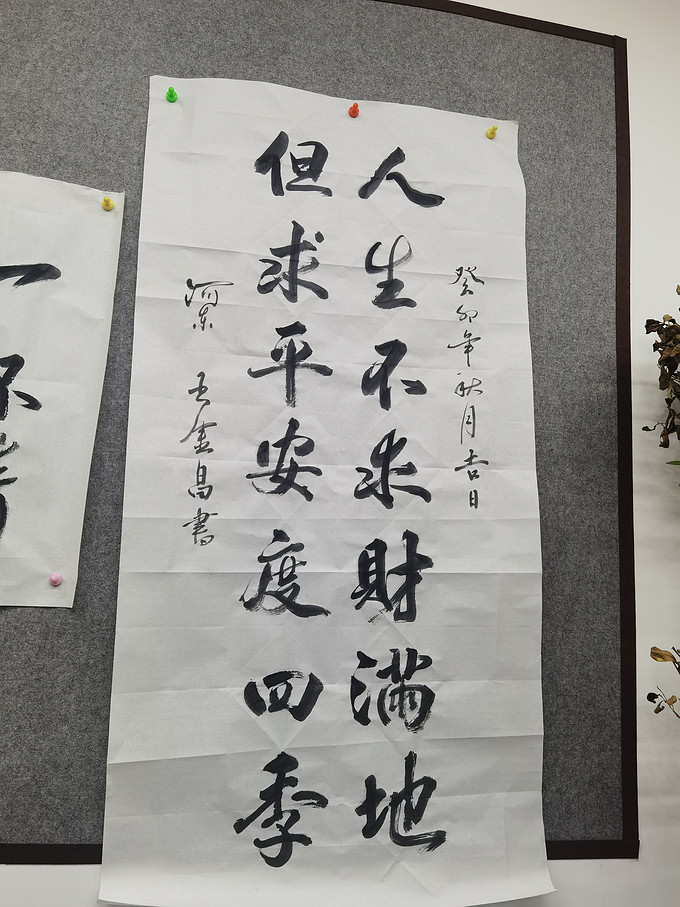 癸卯年秋月吉日
人生不求財满地
但求平安度四季
河东 王金昌書
一